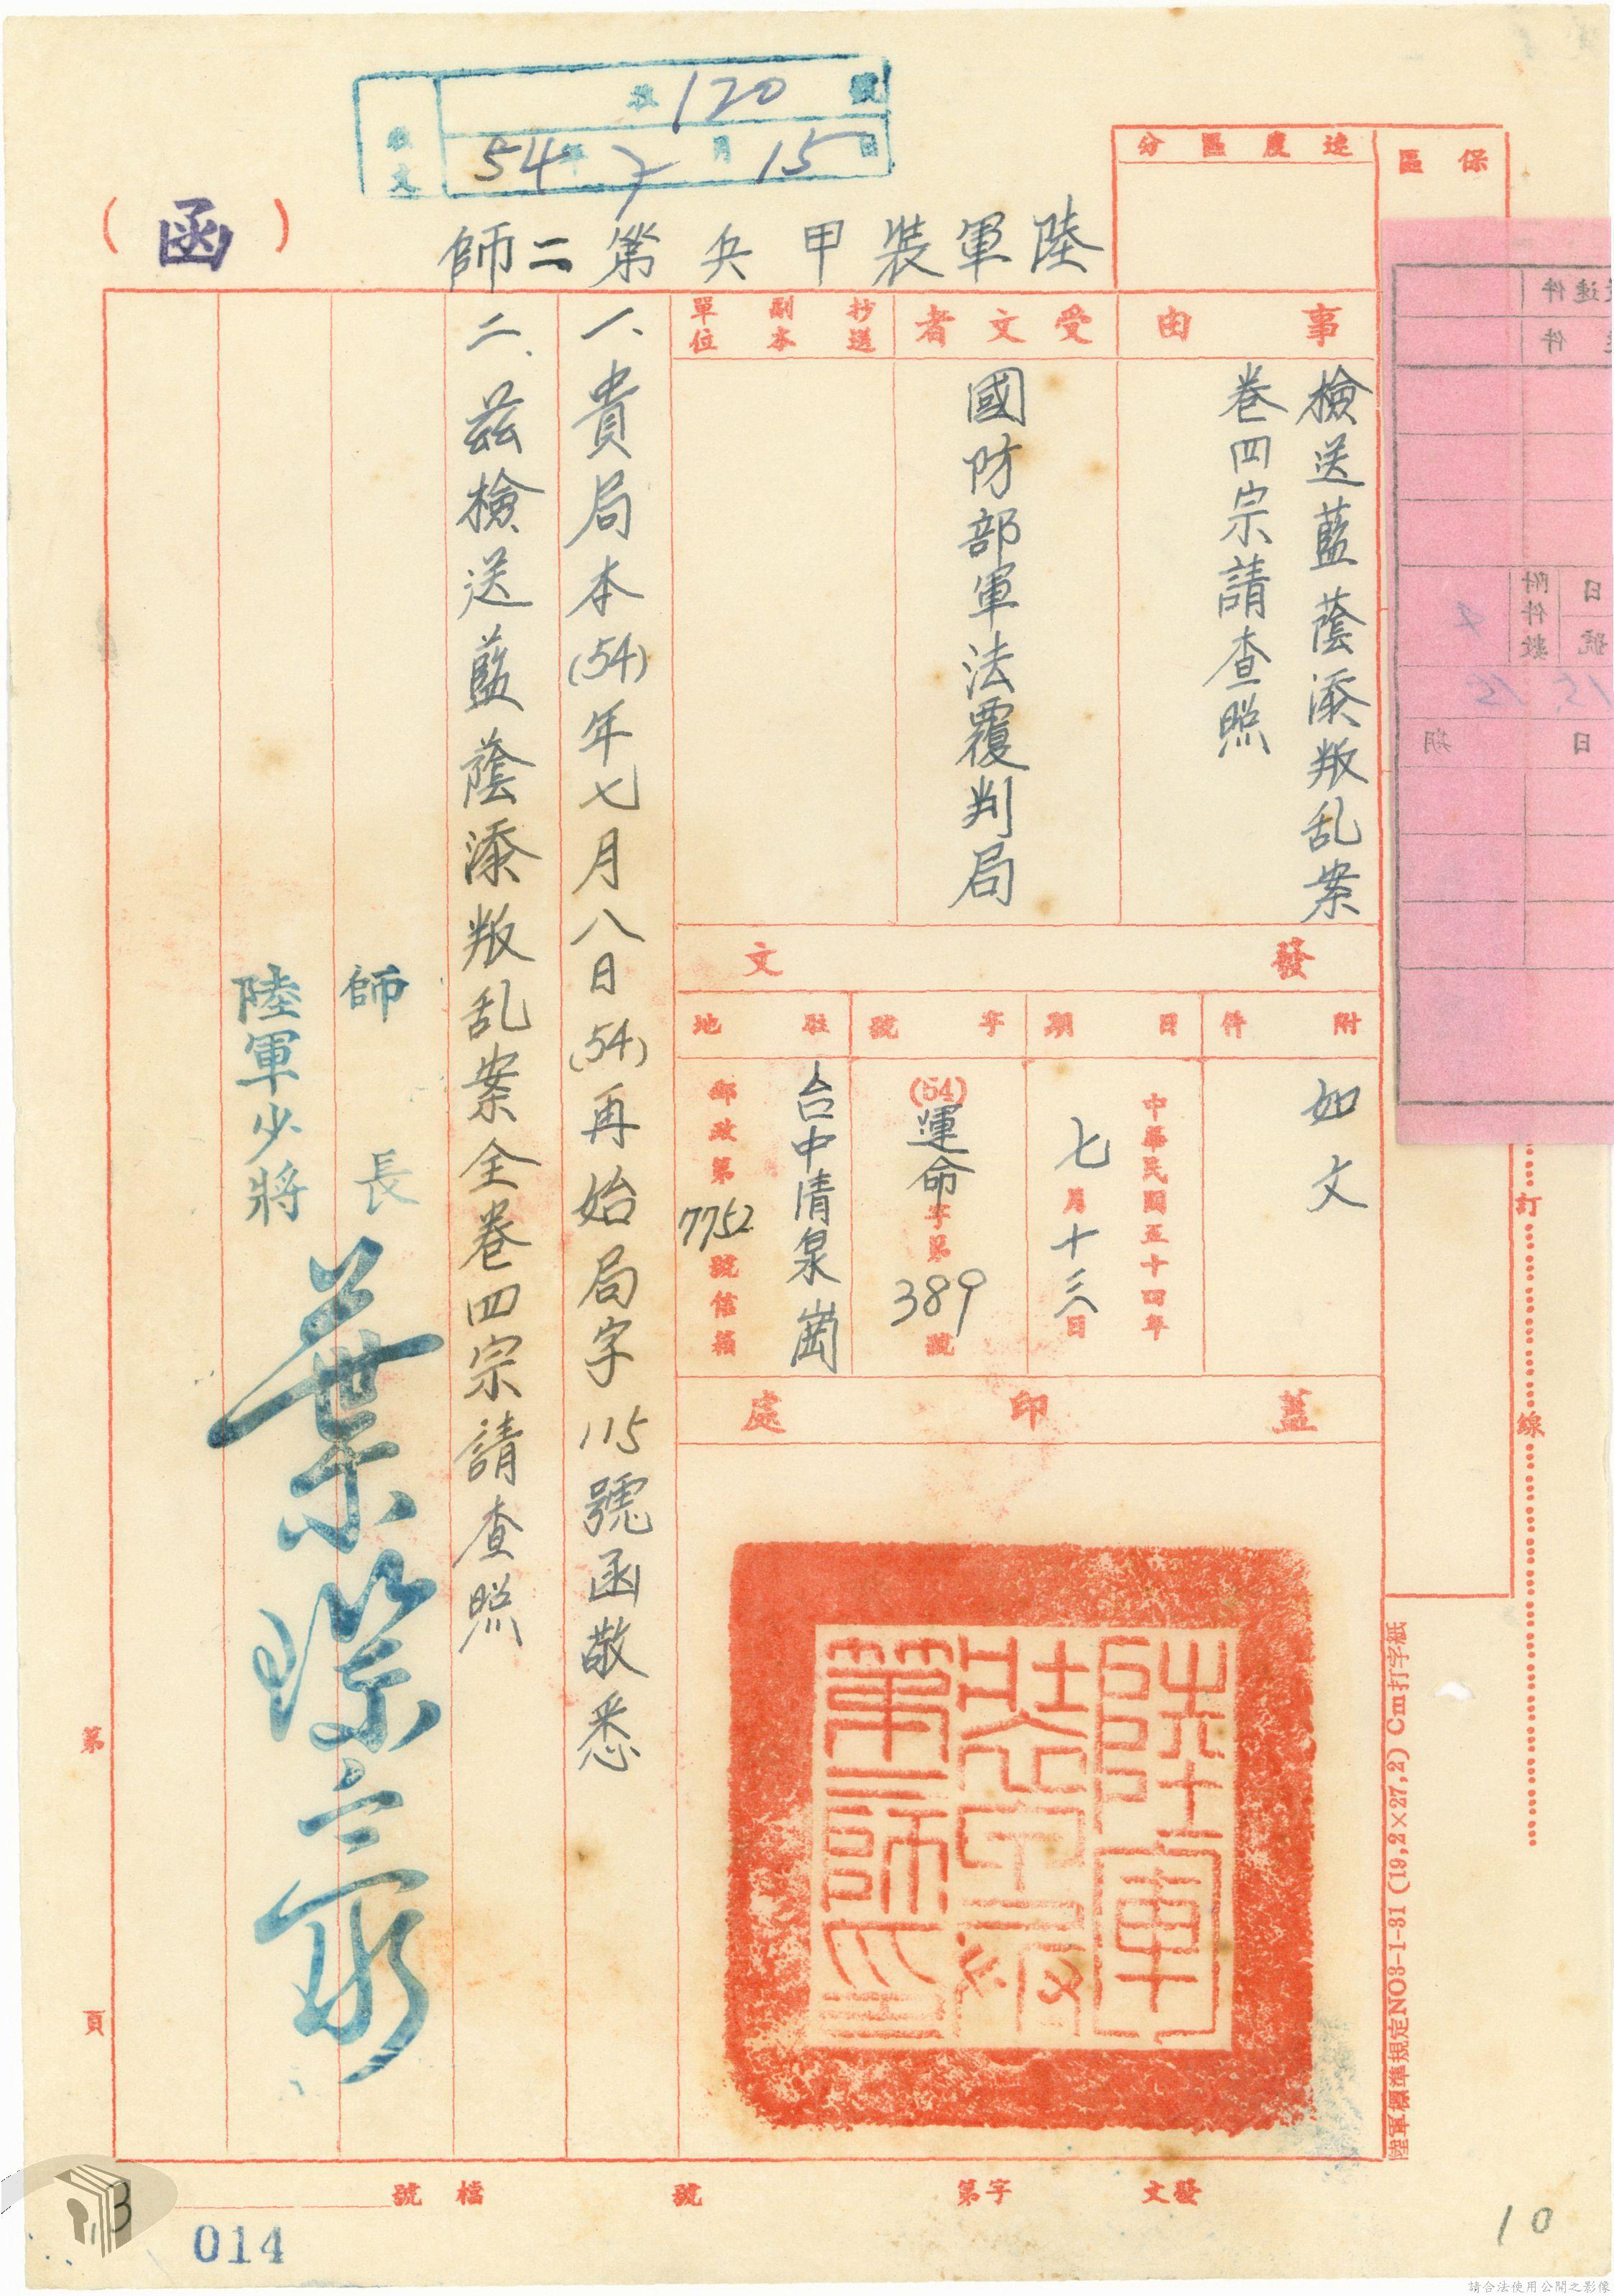 收文
收 120 號
54年7月15日
(函)
陸軍裝甲兵第二師
保區
速度區分
事由
檢送藍蔭添叛乱案
卷四宗請查照
受文者
國防部軍法覆判局
抄送副本單位
發文
附件
如文
日期
中華民國五十四年
七月十三日
字號
(54)運命字第389號
駐地
台中清泉崗
郵政第7752號信箱
蓋印處
陸軍
第二師印
一、貴局本(54)年七月八日(54)再始局字115號函敬悉
二、茲檢送藍蔭添叛乱案全卷四宗請查照
師長
陸軍少將
速件
件
日
號
附件數
4
15
日期
訂
線
陸軍標準規定NO3-1-31 (19,2×27,2) Cm打字紙
第
頁
發文
字第
號
檔號
3
014
10
請合法使用公開之影像